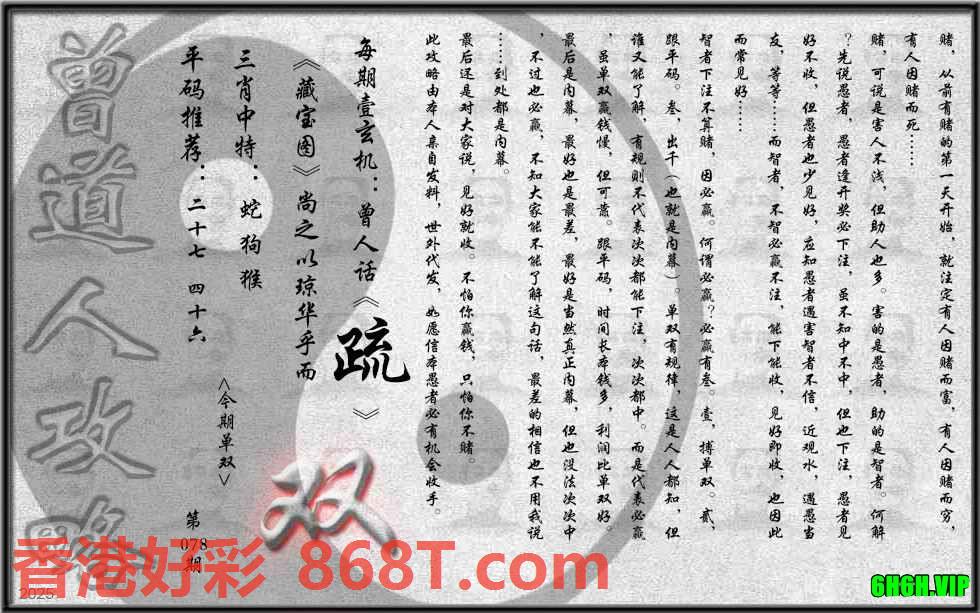 赌，从前有赌的第一天开始，就注定有人因赌而富，有人因赌而穷，
有人因赌而死……
赌，可说是害人不浅，但助人也多。害的是愚者，助的是智者。何解
？先说愚者，愚者逢开奖必下注，虽不知中不中，但也下注，愚者见
好不收，但愚者也少见好，应知愚者遇害智者不信，近观水，遇愚当
友，等等……而智者，不智必赢不注，能下能收，见好即收，也因此
而常见好……
智者下注不算赌，因必赢。何谓必赢？必赢有叁。壹，搏单双。贰，
跟平码。叁，出千（也就是内幕）。单双有规律，这是人人都知，但
谁又能了解，有规则不代表次次都能下注，次次都中。而是代表必赢
，虽单双赢钱慢，但可靠。跟平码，时间长本钱多，利润比单双好。
最后是内幕，最好也是最差，最好是当然真正内幕，但也没法次次中
，不过也必赢，不知大家能不能了解这句话，最差的相信也不用我说
……到处都是内幕。
最后还是对大家说，见好就收。不怕你赢钱，只怕你不赌。
此攻略由本人亲自发料，世外代发，如愿信本愚者必有机会收手。
每期壹玄机：曾人话《疏》
《藏宝图》尚之以琼华乎而
三肖中特：蛇 狗 猴
<今期单双>
双
平码推荐：二十七 四十六
第
078
期
曾道人攻略
2025
香港好彩 868T.com
6H6H.VIP